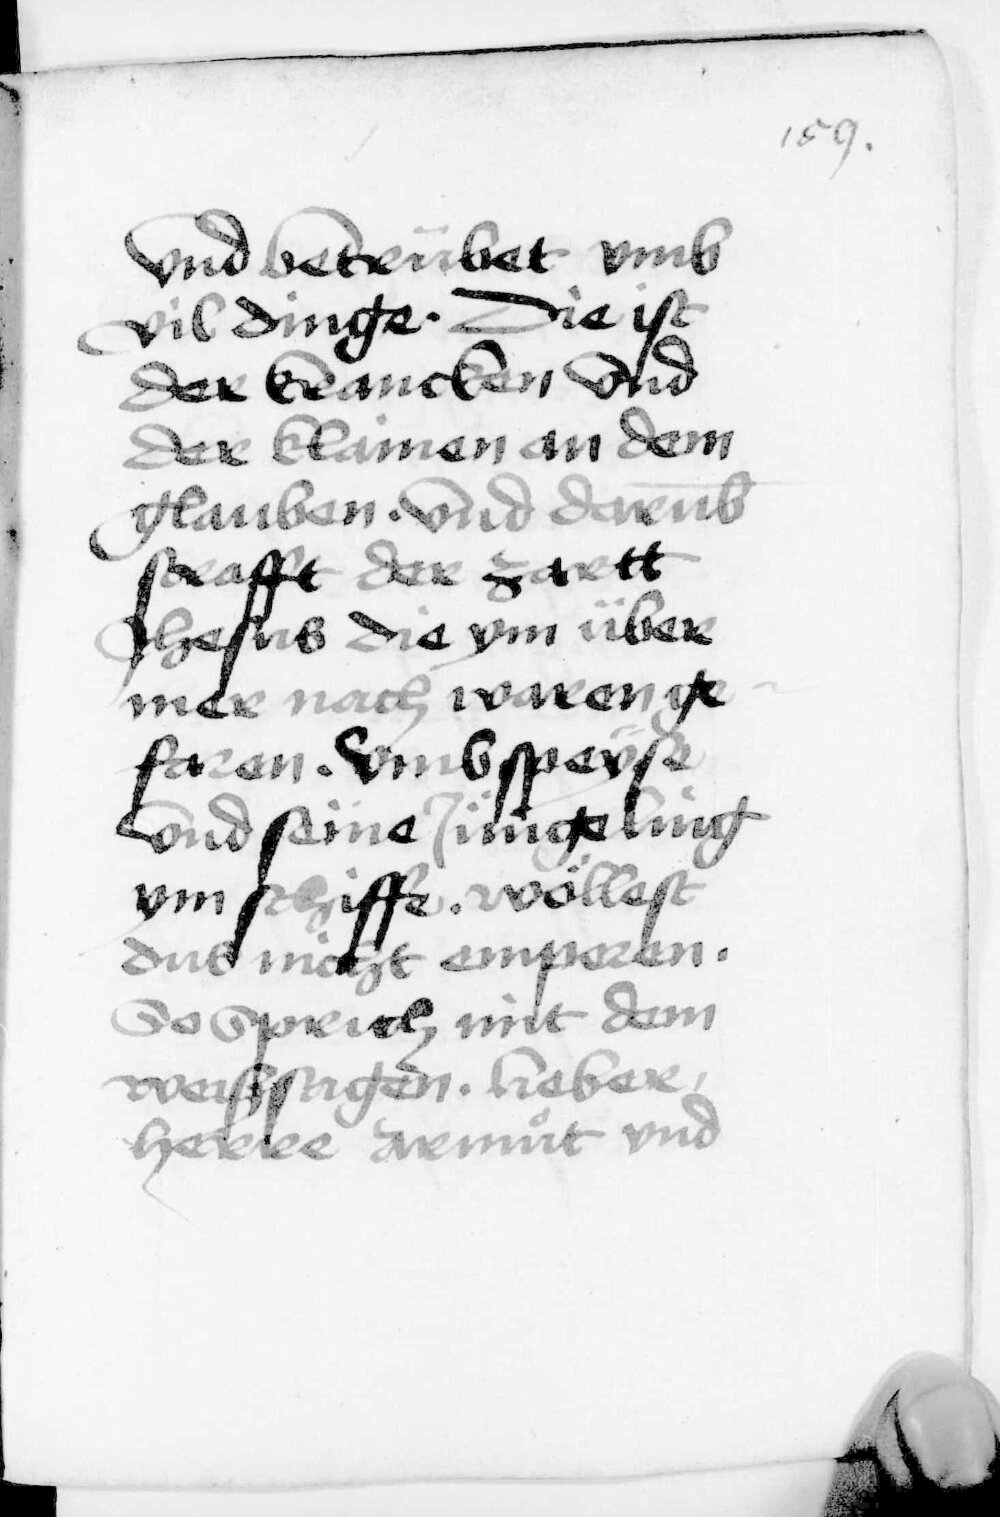 159.
Vnd betrübet vmb
vil dinge. Die ist
der krancken Vnd
der klainen an dem
glauben. Vnd darūb
strafft der zartt
Jhesus die ym über
mer nach waren ge
faren. Vmb speÿse
Vnd seine Jüngeling
ym schiffe. wöllest
dus nicht emperen.
So Sprich mit dem
weissagen. lieber
herre Armůt vnd